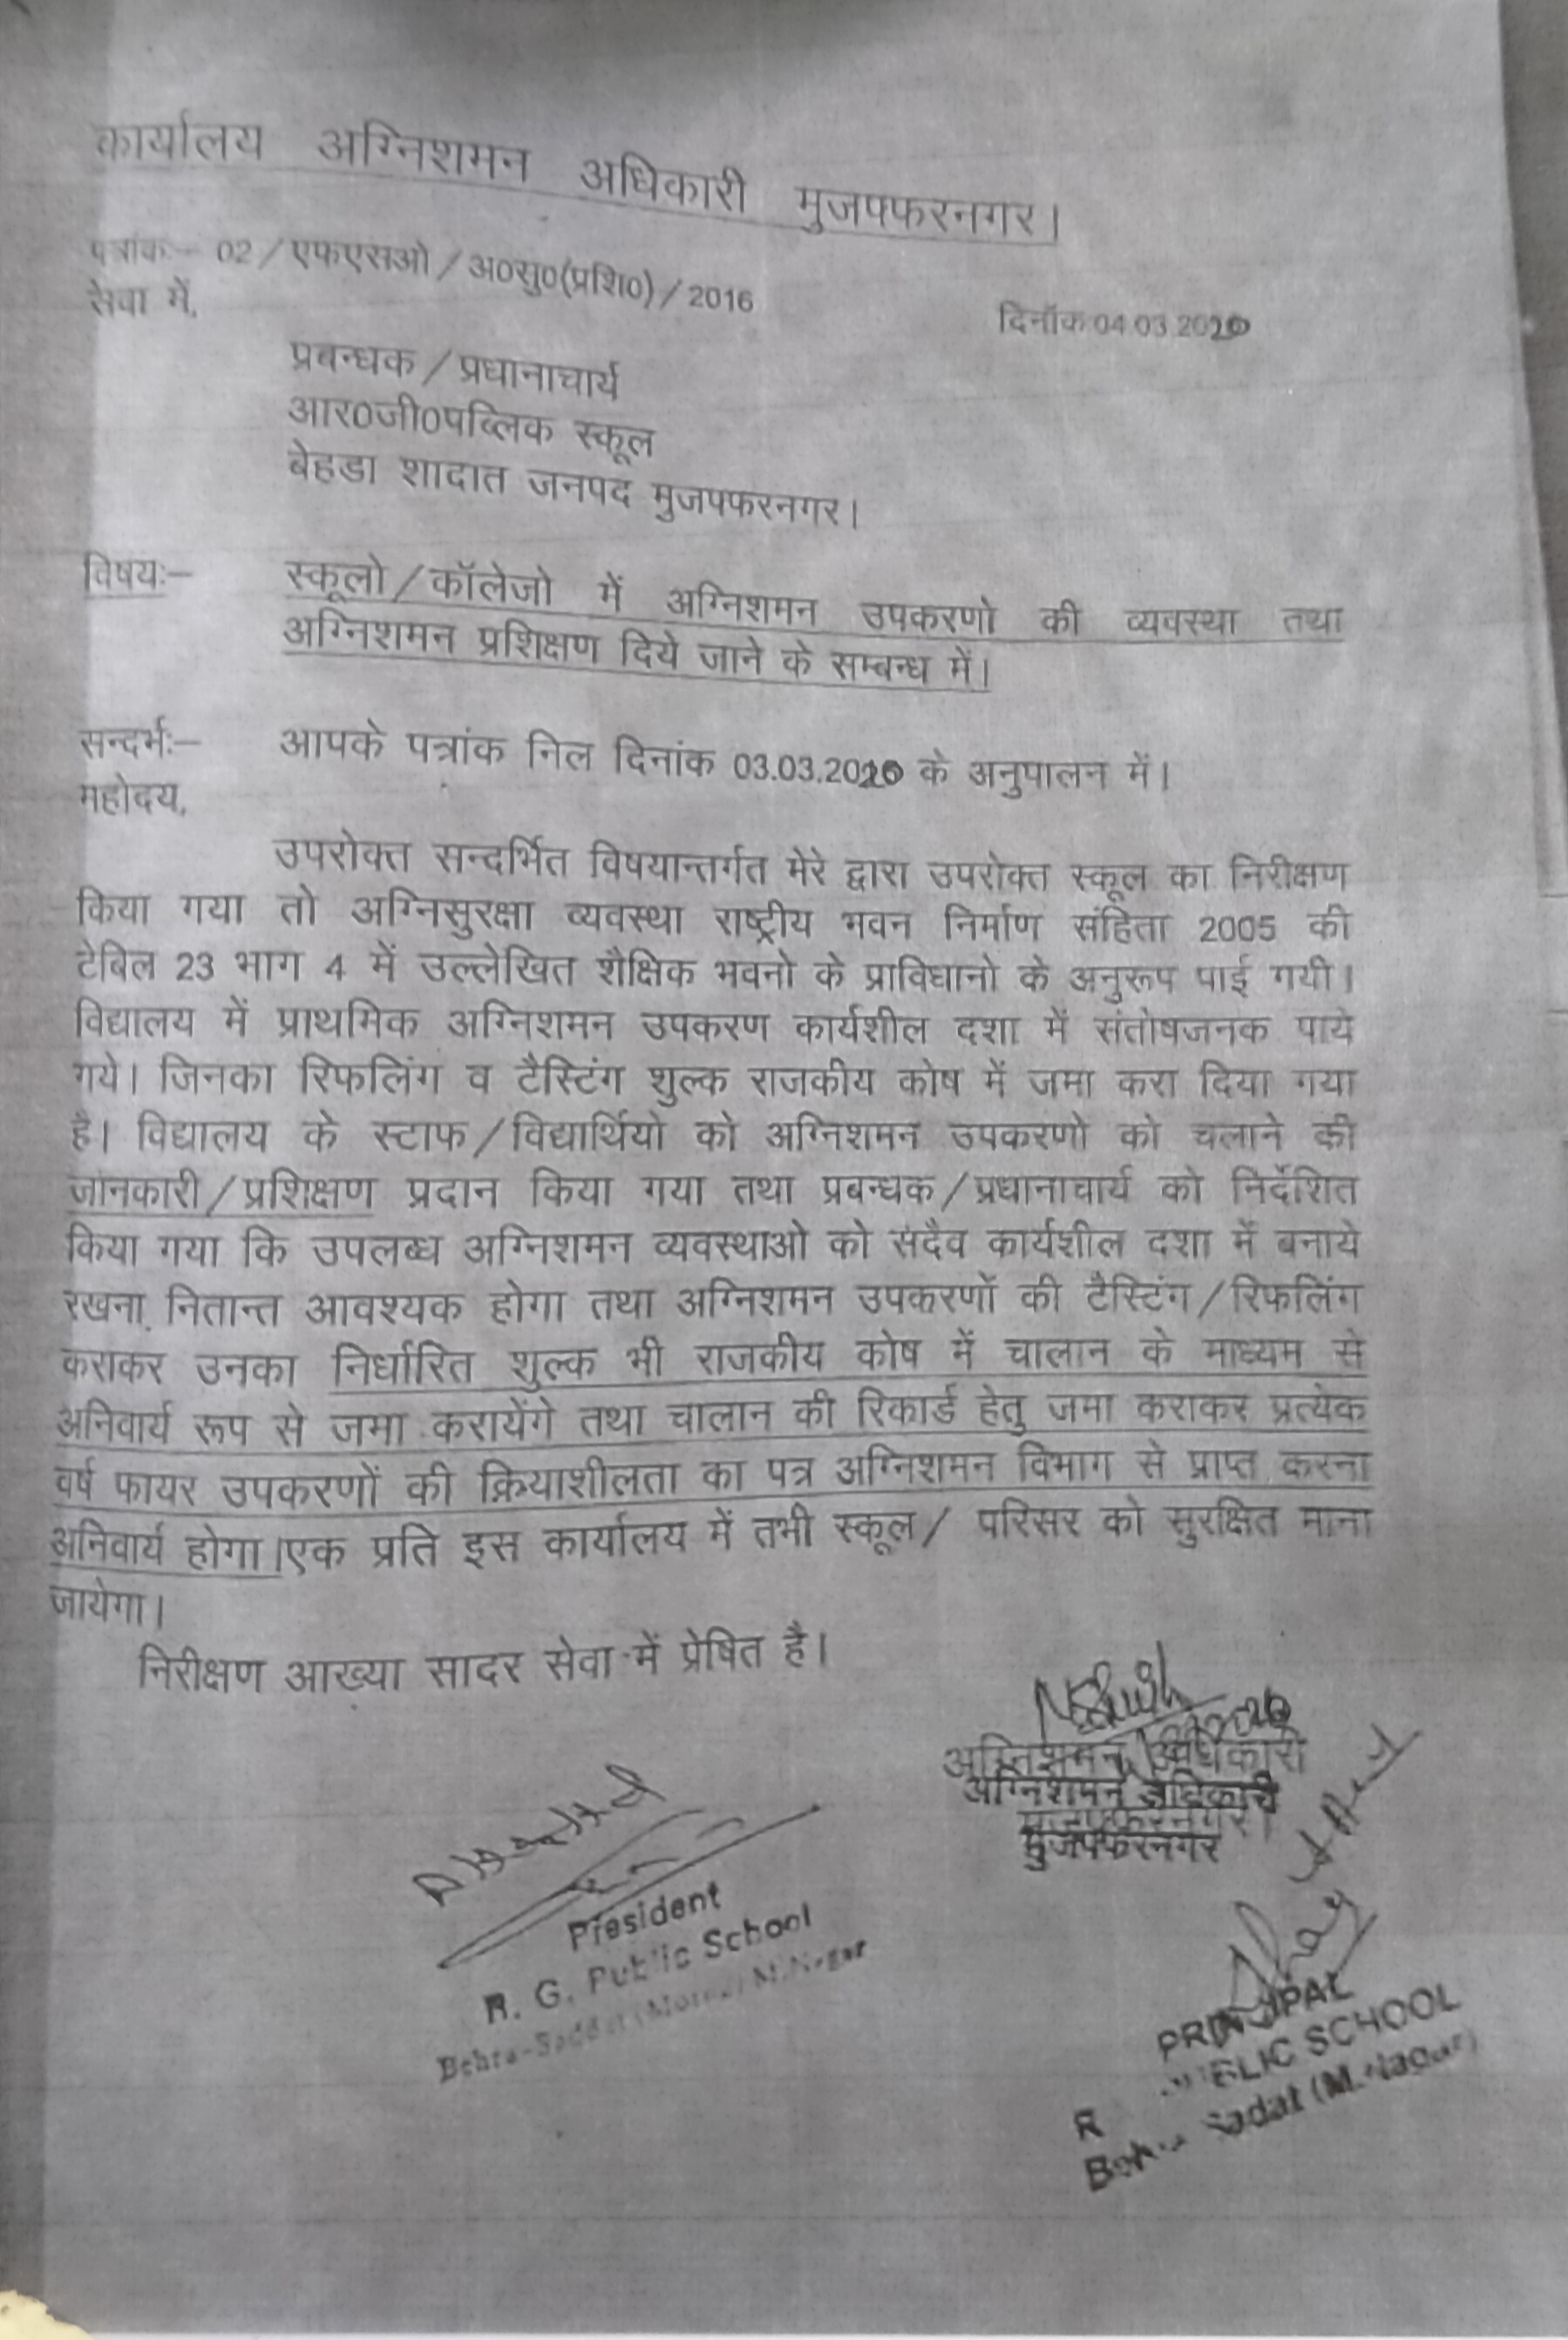 कार्यालय अग्निशमन अधिकारी मुजफ्फरनगर।
पत्रांकः– 02/एफएसओ/अ0सु0(प्रशि0)/2016
सेवा में,
दिनॉक 04.03.2020
प्रबन्धक/प्रधानाचार्य
आर0जी0पब्लिक स्कूल
बेहडा शादात जनपद मुजफ्फरनगर।
विषयः– स्कूलो/कॉलेजो में अग्निशमन उपकरणो की व्यवस्था तथा
अग्निशमन प्रशिक्षण दिये जाने के सम्बन्ध में।
सन्दर्भः– आपके पत्रांक निल दिनांक 03.03.2020 के अनुपालन में।
महोदय,
उपरोक्त सन्दर्भित विषयान्तर्गत मेरे द्वारा उपरोक्त स्कूल का निरीक्षण
किया गया तो अग्निसुरक्षा व्यवस्था राष्ट्रीय भवन निर्माण संहिता 2005 की
टेबिल 23 भाग 4 में उल्लेखित शैक्षिक भवनो के प्राविधानो के अनुरूप पाई गयी।
विद्यालय में प्राथमिक अग्निशमन उपकरण कार्यशील दशा में संतोषजनक पाये
गये। जिनका रिफलिंग व टैस्टिंग शुल्क राजकीय कोष में जमा करा दिया गया
है। विद्यालय के स्टाफ/विद्यार्थियो को अग्निशमन उपकरणो को चलाने की
जानकारी/प्रशिक्षण प्रदान किया गया तथा प्रबन्धक/प्रधानाचार्य को निर्देशित
किया गया कि उपलब्ध अग्निशमन व्यवस्थाओ को सदैव कार्यशील दशा में बनाये
रखना नितान्त आवश्यक होगा तथा अग्निशमन उपकरणों की टैस्टिंग/रिफलिंग
कराकर उनका निर्धारित शुल्क भी राजकीय कोष में चालान के माध्यम से
अनिवार्य रूप से जमा करायेंगे तथा चालान की रिकार्ड हेतु जमा कराकर प्रत्येक
वर्ष फायर उपकरणों की क्रियाशीलता का पत्र अग्निशमन विभाग से प्राप्त करना
अनिवार्य होगा।एक प्रति इस कार्यालय में तभी स्कूल/ परिसर को सुरक्षित माना
जायेगा।
निरीक्षण आख्या सादर सेवा में प्रेषित है।
अग्निशमन अधिकारी
अग्निशमन अधिकारी
मुजफ्फरनगर।
मुजफ्फरनगर
President
R. G. Public School
PRINCIPAL
R SCHOOL